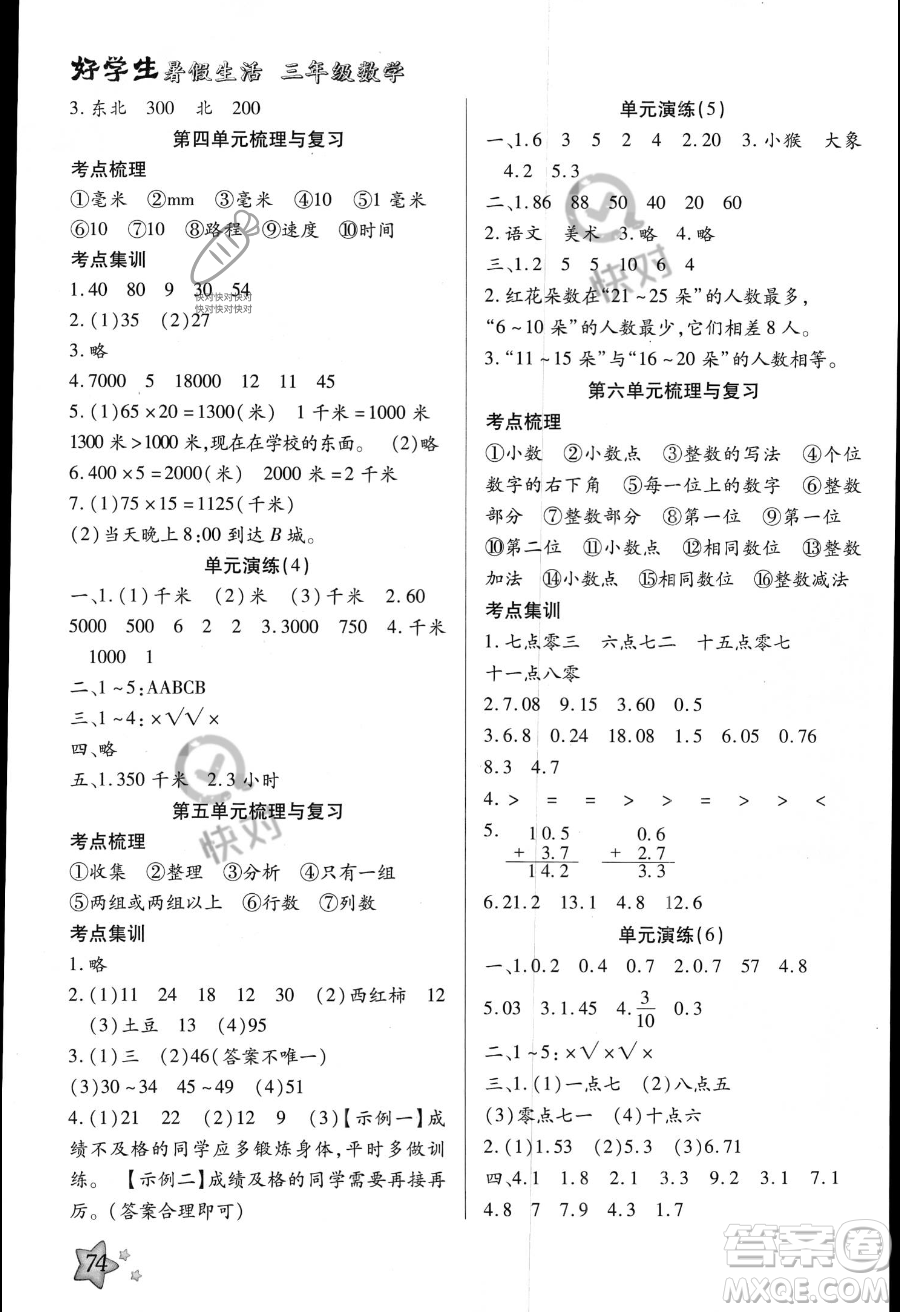 好学生暑假生活 三年级数学
3.东北 300 北 200
第四单元梳理与复习
考点梳理
①毫米 ②mm ③毫米 ④10 ⑤1毫米
⑥10 ⑦10 ⑧路程 ⑨速度 ⑩时间
考点集训
1.40 80 9 30 54
2.(1)35 (2)27
3.略
4.7000 5 18000 12 11 45
5.(1)65×20=1300(米) 1千米=1000米
1300米>1000米,现在在学校的东面。 (2)略
6.400×5=2000(米) 2000米=2千米
7.(1)75×15=1125(千米)
(2)当天晚上8:00到达B城。
单元演练(4)
一、1.(1)千米 (2)米 (3)千米 2.60
5000 500 6 2 2 3.3000 750 4.千米
1000 1
二、1~5:AABCB
三、1~4:×√√×
四、略
五、1.350千米 2.3小时
第五单元梳理与复习
考点梳理
①收集 ②整理 ③分析 ④只有一组
⑤两组或两组以上 ⑥行数 ⑦列数
考点集训
1.略
2.(1)11 24 18 12 30 (2)西红柿 12
(3)土豆 13 (4)95
3.(1)三 (2)46(答案不唯一)
(3)30~34 45~49 (4)51
4.(1)21 22 (2)12 9 (3)【示例一】成
绩不及格的同学应多锻炼身体,平时多做训
练。 【示例二】成绩及格的同学需要再接再
厉。(答案合理即可)
74
单元演练(5)
一、1.6 3 5 2 4 2.20 3.小猴 大象
4.2 5.3
二、1.86 88 50 40 20 60
2.语文 美术 3.略 4.略
三、1.2 5 5 10 6
2.红花朵数在“21~25朵”的人数最多,
“6~10朵”的人数最少,它们相差8人。
3.“11~15朵”与“16~20朵”的人数相等。
第六单元梳理与复习
考点梳理
①小数 ②小数点 ③整数的写法 ④个位
数字的右下角 ⑤每一位上的数字 ⑥整数
部分 ⑦整数部分 ⑧第一位 ⑨第一位
⑩第二位 ⑪小数点 ⑫相同数位 ⑬整数
加法 ⑭小数点 ⑮相同数位 ⑯整数减法
考点集训
1.七点零三 六点七二 十五点零七
十一点八零
2.7.08 9.15 3.60 0.5
3.6.8 0.24 18.08 1.5 6.05 0.76
8.3 4.7
4.> = = > > = > > <
5. 10.5 0.6
+ 3.7 + 2.7
14.2 3.3
6.21.2 13.1 4.8 12.6
单元演练(6)
一、1.0.2 0.4 0.7 2.0.7 57 4.8
5.03 3.1.45 4.3/10 0.3
二、1~5:×√×√×
三、1.(1)一点七 (2)八点五
(3)零点七一 (4)十点六
2.(1)1.53 (2)5.3 (3)6.71
四、4.1 1 3.8 2.9 11.1 7.1
4.8 7 7.9 5.8 0.9
快对
快对
快对快对快对
快对快对快对
答案圈
MXQE.COM